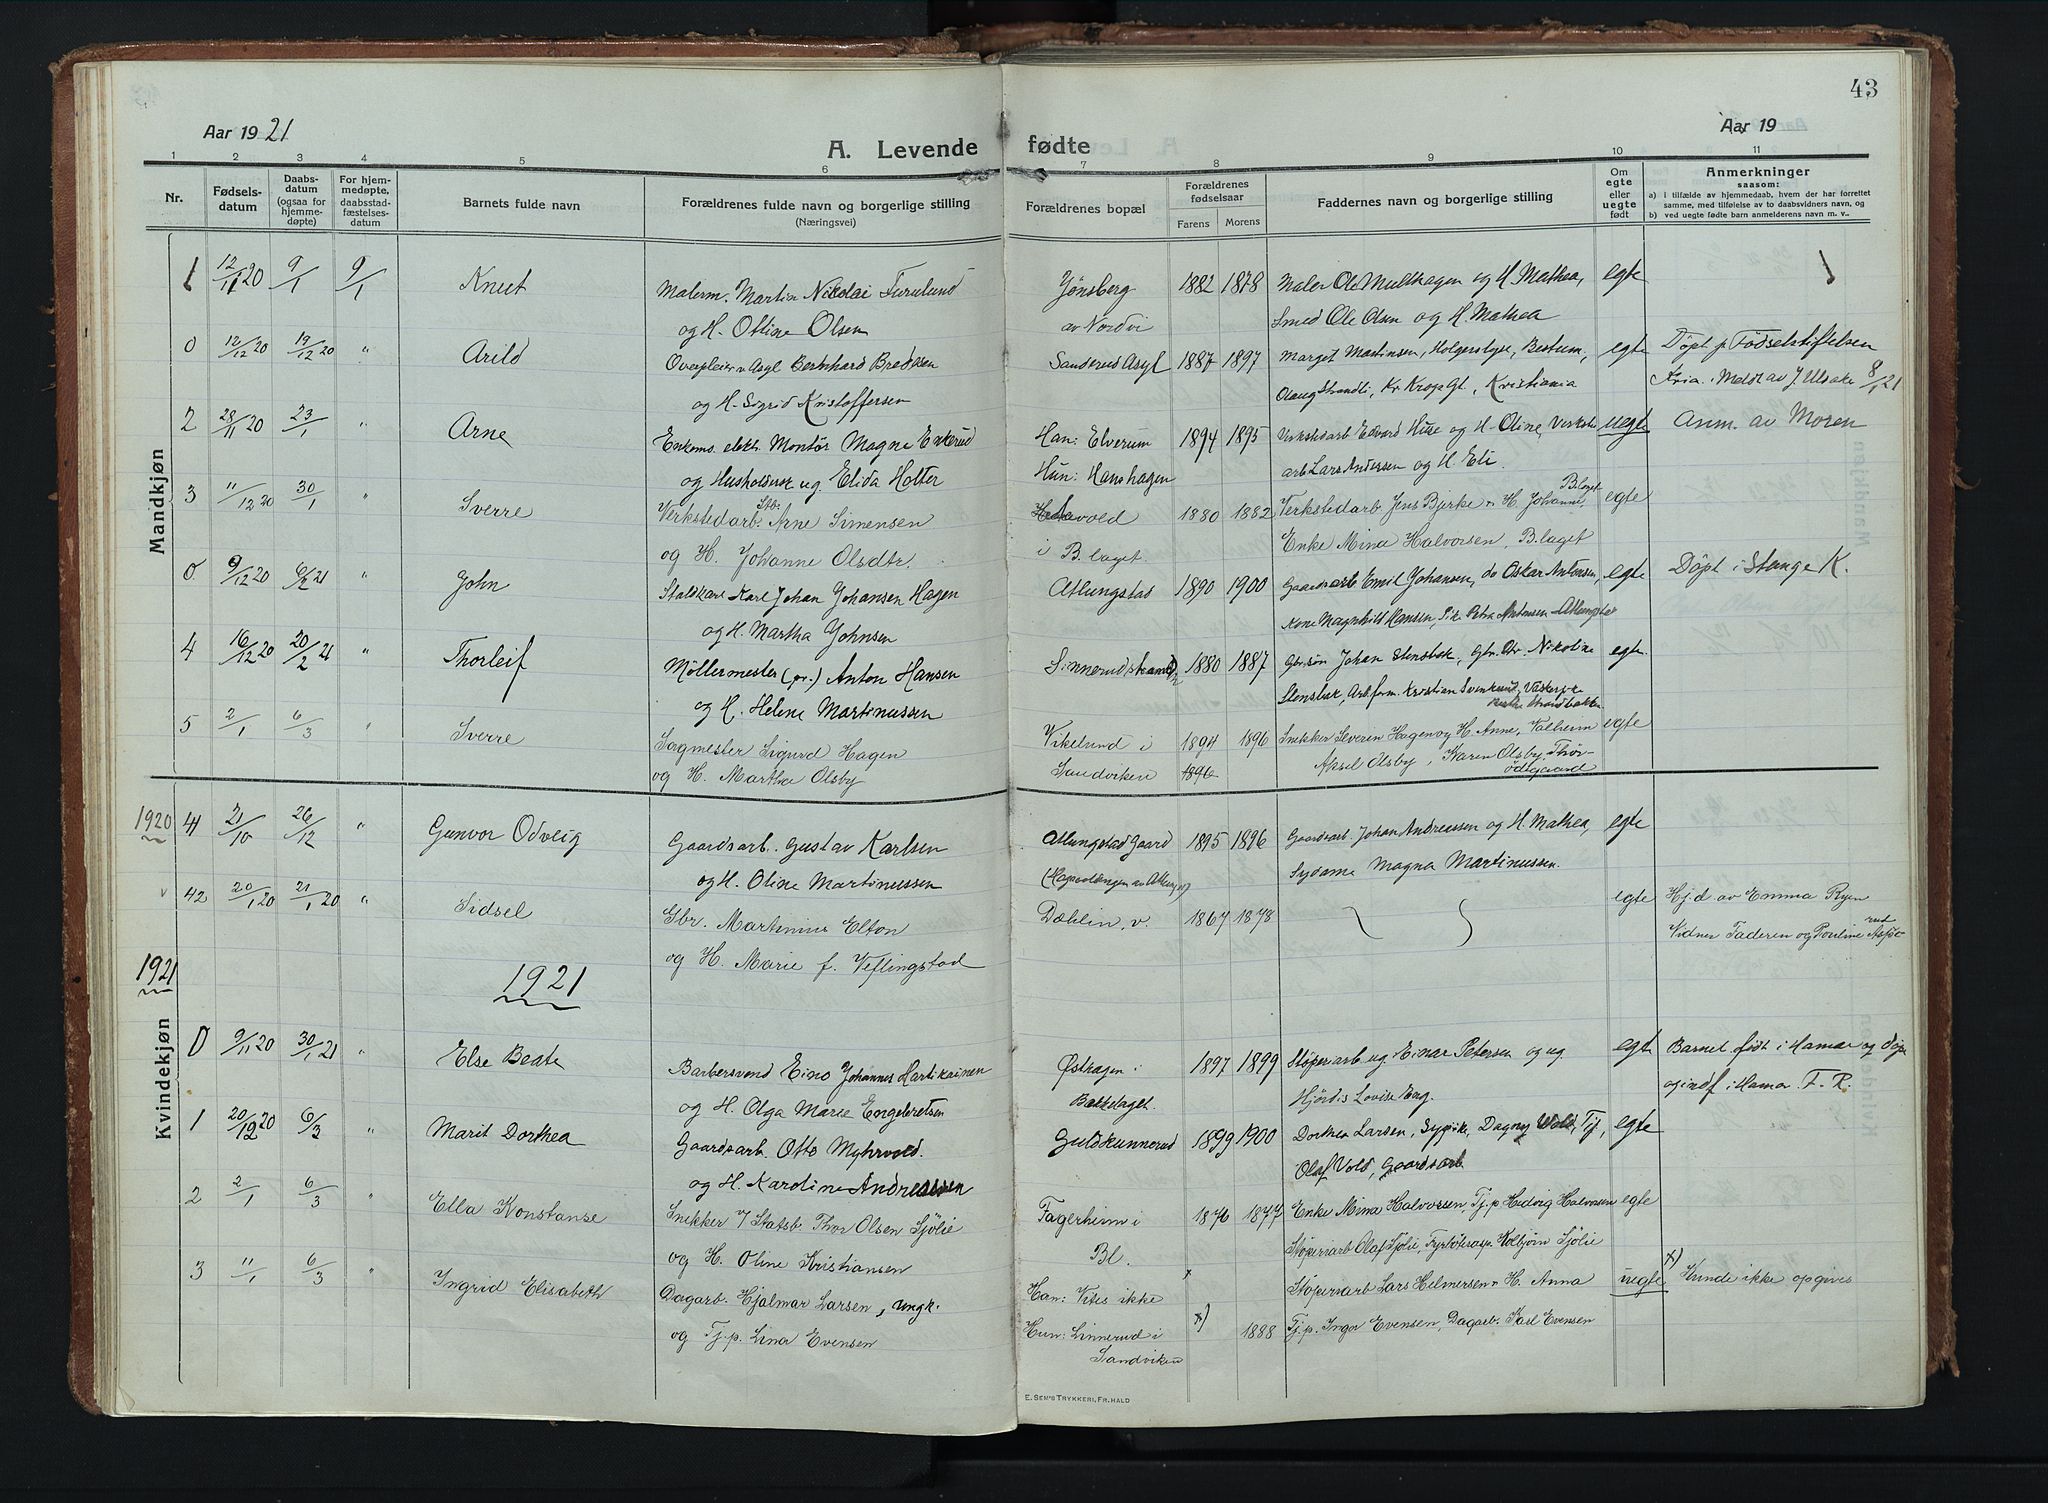 43
Aar 1921
Aar 19
A. Levende fødte
1 2 3 4 5 6 7 8 9 10 11
Nr.
Fødselsdatum
Daabsdatum (ogsaa for hjemmedøpte)
For hjemmedøpte, daabsstadfæstelsesdatum
Barnets fulde navn
Forældrenes fulde navn og borgerlige stilling
(Næringsvei)
Forældrenes bopæl
Forældrenes fødselsaar
Farens Morens
Faddernes navn og borgerlige stilling
Om egte eller uegte født
Anmerkninger
saasom:
a) i tilfælde av hjemmedaab, hvem der har forrettet samme, med tilføielse av to daabsvidners navn, og
b) ved uegte fødte barn anmelderens navn m. v.
Mandkjøn
1 12/11 20 9/1 9/1 Knut Malerm. Martin Nikolai Furulund Jønsberg 1882 1878 Maler Ole Multhagen og H. Mathea, egte
og H. Otline Olsen av Nordvi Smed Ole Olsen og H. Mathea
0 12/12 20 19/12 20 " Arild Overpleier v. Asyl Bernhard Bredesen Sanderud Asyl 1887 1897 Marget Martinsen, Holgerslyse, Bestum, egte Døpt p. Fødselstiftelsen
og H. Sigrid Kristoffersen Olaug Strandli, Kr. Krogs Gt., Kristiania Kria. Meldt av J. Ulsake 8/1 21
2 28/11 20 23/1 " Arne Enkem. elektr. Montør Magne Enkerud Han: Elverum 1894 1895 Verkstedarb Edvard Huse og H. Oline, Verkst. uegte Anm. av Moren
og Husholdersk. ug. Elida Holter Hun: Hanshagen arb. Lars Andersen og H. Eli.
3 11/12 20 30/1 " Sverre Verkstedarb. Stb. Arne Simensen vold 1880 1882 Verkstedarb Jens Bjerke o. H. Johanne, B.laget egte
og H. Johanne Olsdtr. i B. laget Enke Mina Halvorsen, B.laget
0. 9/12 20 6/2 21 " John Staldkarl Karl Johan Johansen Hagen Atlungstad 1890 1900 Gaardsarb Emil Johansen, do Oskar Antonsen, egte Døpt i Stange K.
og H. Martha Johnsen Kone Magnhild Hansen, Pike Petra Antonsen Atlungstad
4 16/12 20 20/2 21 " Thorleif Møllermester (pr.) Anton Hansen Sinnerudstranden 1880 1887 Gbr.søn Johan Stensbak, Gbr. Dtr. Nikoline egte.
og H. Helene Martinussen Stensbak, Arb.form. Kristian Svenkerud, Vaskerpike Strandbakken
5 2/1 6/3 " Sverre Sagmester Sigurd Hagen Vikelund i 1894 1896 Snikker Severin Hagen og H. Anne, Valheim egte
og H. Martha Olsby Sandviken 1896 Aksel Olsby, Karen Olsby, Thorødegaard
1920 41 21/10 26/12 " Gunvor Odveig Gaardsarb. Gustav Karlsen Atlungstad Gaard 1895 1896 Gaardsarb. Johan Andreassen og H. Mathea, egte
og H. Oline Martinussen Sydame Magna Martinussen.
42 20/1 20 21/1 20 " Sidsel Gbr. Martinius Elton Dæhlin, v. 1867 1878 egte Hj.d av Emma Ryen
og H. Marie f. Veflingstad Vidner Faderen og Pouline Aspørud
1921
1921
Kvindekjøn
0 9/11 20 30/1 21 " Else Beate Barbersvend Eino Johannes Hartikainen Østhagen i 1897 1899 Støperiarb ug Einar Petersen og ug. egte Barnet født i Hamar og døpt
og H. Olga Marie Engebretsen Bækkelaget. Hjørdis Lovise Eng. og indf. i Hamar F. R.
1 20/12 20 6/3 " Marit Dorthea Gaardsarb. Otto Myhrvold. Guldkunnerud 1899 1900 Dorthea Larsen, Sypike, Dagny Vold, Tj, egte
og H. Karoline Andreassen Olaf Vold, Gaardsarb
2 2/1 6/3 " Ella Konstanse Snikker v/ Statsb. Thor Olsen Sjølie Fagerheim i 1876 1877 Enke Mina Halvorsen, Tj.p Hedvig Halvorsen egte
og H. Oline Kristiansen Bl. Støperiarb Olaf Sjølie, Fyrbøterasp. Kolbjørn Sjølie
3 11/1 6/3 " Ingrid Elisabeth Dagarb. Hjalmar Larsen, Ungk. Han: Vites ikke x Støperiarb Lars Helmersen o. H. Anna uegte x) Kunde ikke opgives
og Tj.p. Lina Evensen Hun: Linnerud i Sandviken x) 1888 Tj.p. Inga Evensen, Dagarb. Karl Evensen
E. SEM'S TRYKKERI, FR.HALD